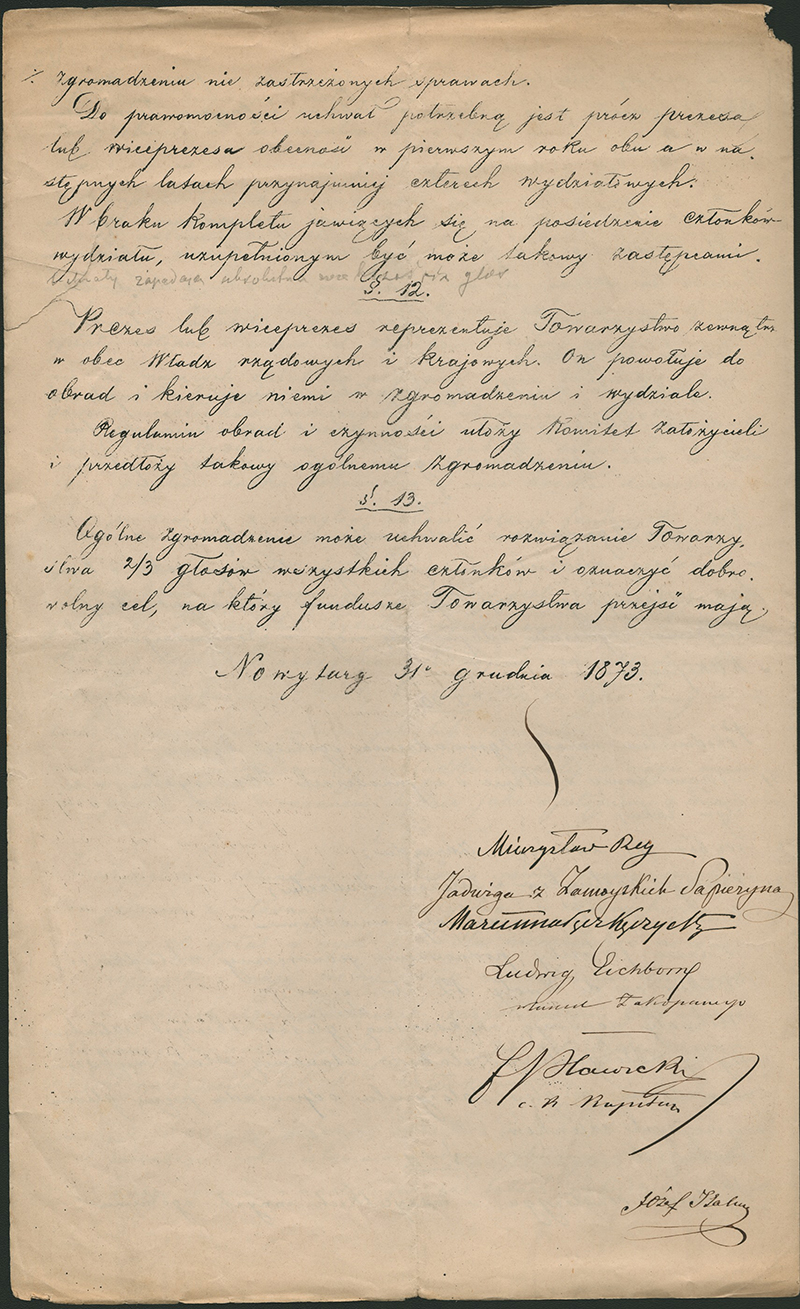 ⁒ zgromadzeniu nie zastrzeżonych sprawach.
Do prawomocności uchwał potrzebną jest prócz prezesa
lub wiceprezesa obecność w pierwszym roku obu a w na-
stępnych latach przynajmniej czterech wydziałowych.
W braku kompletu jawiących się na posiedzenie członków
wydziału, uzupełnionym być może takowy zastępcami.
Uchwały zapadają absolutną większością głosów
§. 12.
Prezes lub wiceprezes reprezentuje Towarzystwo zewnątrz
w obec Władz rządowych i krajowych. On powołuje do
obrad i kieruje niemi w zgromadzeniu i wydziale.
Regulamin obrad i czynności ułoży Komitet założycieli
i przedłoży takowy ogólnemu Zgromadzeniu.
§. 13.
Ogólne zgromadzenie może uchwalić rozwiązanie Towarzy-
stwa 2/3 głosów wszystkich członków i oznaczyć dobro-
wolny cel, na który fundusze Towarzystwa przejść mają.
Nowytarg 31º grudnia 1873.
Mieczysław Rey
Jadwiga z Zamoyskich Sapieżyna
Ludwig Eichborn
Zakopanego
c. k. Kapitan
Józef